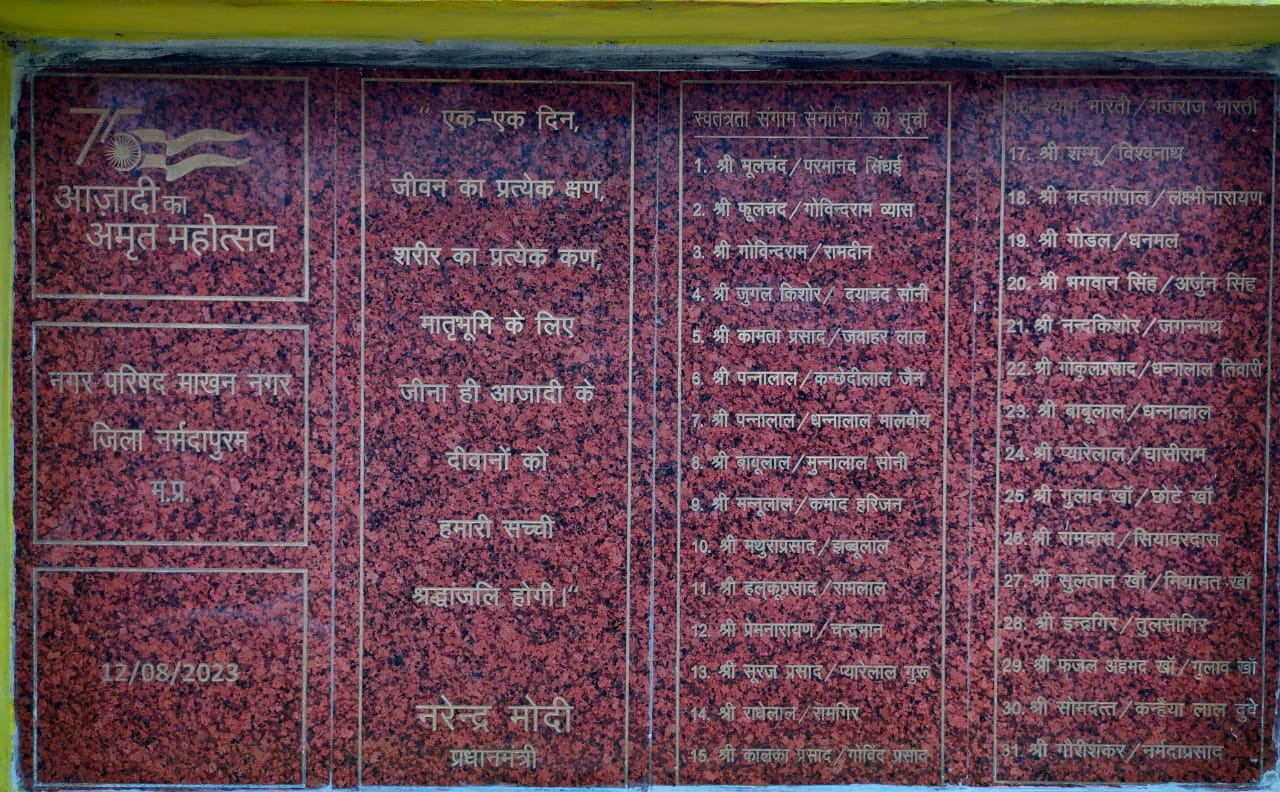 75
आज़ादी का
अमृत महोत्सव
नगर परिषद माखन नगर
जिला नर्मदापुरम
म.प्र.
12/08/2023
“ एक–एक दिन,
जीवन का प्रत्येक क्षण,
शरीर का प्रत्येक कण,
मातृभूमि के लिए
जीना ही आजादी के
दीवानों को
हमारी सच्ची
श्रद्धाजलि होगी।“
नरेन्द्र मोदी
प्रधानमंत्री
स्वतंत्रता संगाम सेनानियों की सूची
1. श्री मूलचंद/परमानद सिंघई
2. श्री फूलचंद/गोविन्दराम व्यास
3. श्री गोविन्दराम/रामदीन
4. श्री जुगल किशोर/ दयाचंद सोनी
5. श्री कामता प्रसाद/जवाहर लाल
6. श्री पन्नालाल/कन्छेदीलाल जैन
7. श्री पन्नालाल/धन्नालाल मालवीय
8. श्री बाबूलाल/मुन्नालाल सोनी
9. श्री मन्नूलाल/कमोद हरिजन
10. श्री मथुराप्रसाद/झब्बूलाल
11. श्री हल्कूप्रसाद/रामलाल
12. श्री प्रेमनारायण/चन्द्रभान
13. श्री सूरज प्रसाद/प्यारेलाल गुरू
14. श्री राधेलाल/रामगिर
15. श्री कालका प्रसाद/गोविंद प्रसाद
16. श्याम भारती/गजराज भारती
17. श्री शम्भू/विश्वनाथ
18. श्री मदनगोपाल/लक्ष्मीनारायण
19. श्री गोडल/धनमल
20. श्री भगवान सिंह/अर्जुन सिंह
21. श्री नन्दकिशोर/जगन्नाथ
22. श्री गोकुलप्रसाद/धन्नालाल तिवारी
23. श्री बाबूलाल/धन्नालाल
24. श्री प्यारेलाल/घासीराम
25. श्री गुलाव खॉ/छोटे खॉ
26. श्री रामदास/सियावरदास
27. श्री सुलतान खॉ/नियामत खॉ
28. श्री इन्द्रगिर/तुलसीगिर
29. श्री फजल अहमद खॉ/गुलाव खॉ
30. श्री सोमदत्त/कन्हैया लाल दुवे
31. श्री गौरीशंकर/नर्मदाप्रसाद